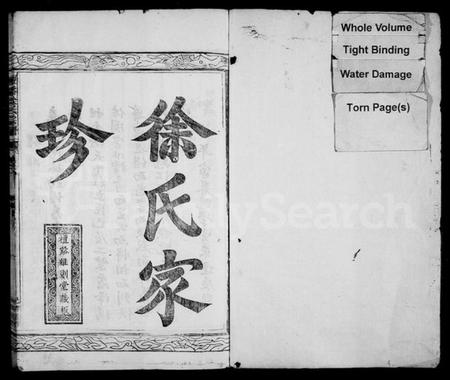 徐氏家
珍
Whole Volume
Tight Binding
Water Damage
Torn Page(s)
FamilySearch